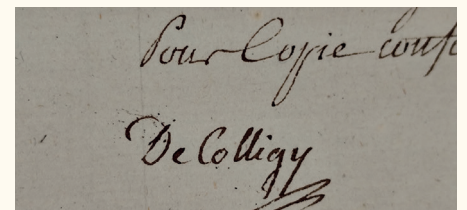 Pour Copie conf
De Colligy